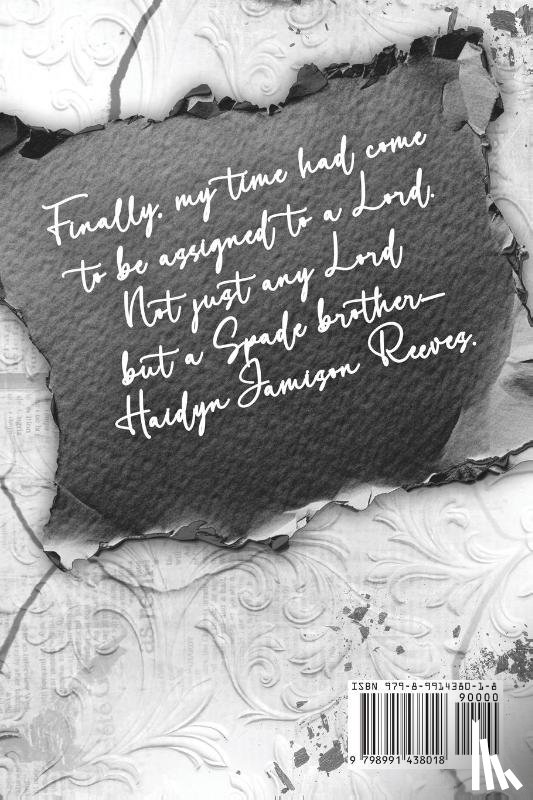 Finally, my time had come
to be assigned to a Lord.
Not just any Lord
but a Spade brother—
Haidyn Jamison Reeves.
ISBN 979-8-9914380-1-8
90000
9 798991 438018